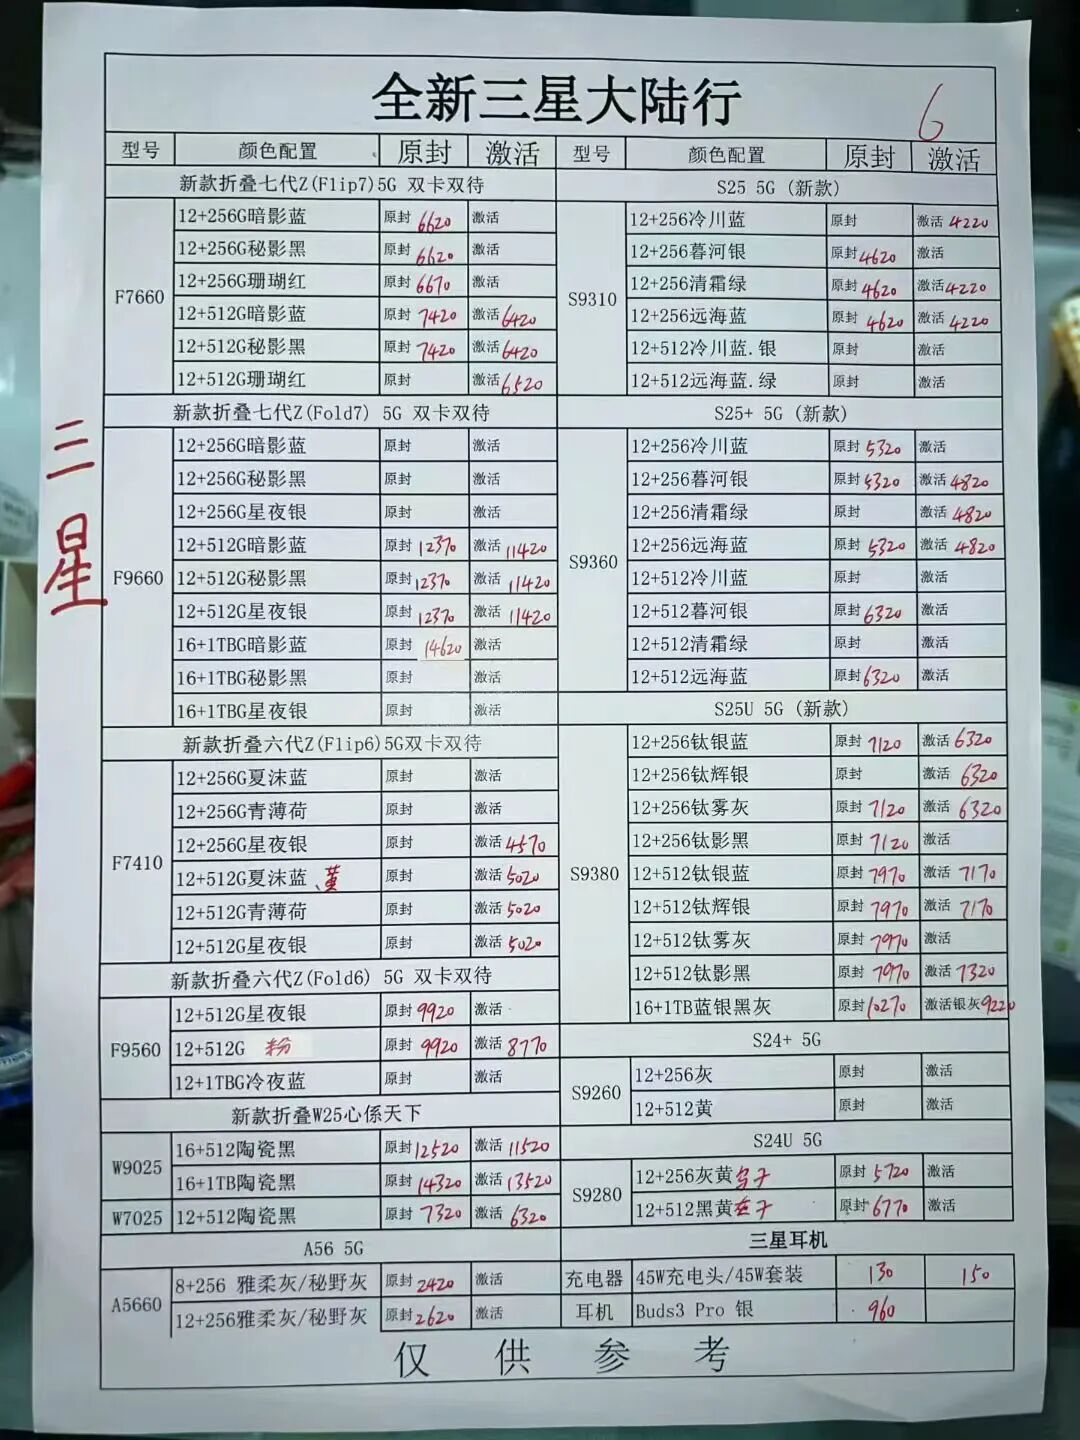 全新三星大陆行
6
三星
型号 颜色配置 原封 激活
新款折叠七代Z(Flip7)5G 双卡双待
F7660
12+256G暗影蓝 原封 6620 激活
12+256G秘影黑 原封 6620 激活
12+256G珊瑚红 原封 6670 激活
12+512G暗影蓝 原封 7420 激活 6420
12+512G秘影黑 原封 7420 激活 6420
12+512G珊瑚红 原封 激活 6520
新款折叠七代Z(Fold7) 5G 双卡双待
F9660
12+256G暗影蓝 原封 激活
12+256G秘影黑 原封 激活
12+256G星夜银 原封 激活
12+512G暗影蓝 原封 12370 激活 11420
12+512G秘影黑 原封 12370 激活 11420
12+512G星夜银 原封 12370 激活 11420
16+1TBG暗影蓝 原封 14620 激活
16+1TBG秘影黑 原封 激活
16+1TBG星夜银 原封 激活
新款折叠六代Z(Flip6)5G双卡双待
F7410
12+256G夏沫蓝 原封 激活
12+256G青薄荷 原封 激活
12+256G星夜银 原封 激活 4570
12+512G夏沫蓝、黄 原封 激活 5020
12+512G青薄荷 原封 激活 5020
12+512G星夜银 原封 激活 5020
新款折叠六代Z(Fold6) 5G 双卡双待
F9560
12+512G星夜银 原封 9920 激活
12+512G 粉 原封 9920 激活 8770
12+1TBG冷夜蓝 原封 激活
新款折叠W25心係天下
W9025
16+512陶瓷黑 原封 12520 激活 11520
16+1TB陶瓷黑 原封 14320 激活 13520
W7025 12+512陶瓷黑 原封 7320 激活 6320
A56 5G
A5660
8+256 雅柔灰/秘野灰 原封 2420 激活
12+256雅柔灰/秘野灰 原封 2620 激活
型号 颜色配置 原封 激活
S25 5G (新款)
S9310
12+256冷川蓝 原封 激活 4220
12+256暮河银 原封 4620 激活
12+256清霜绿 原封 4620 激活 4220
12+256远海蓝 原封 4620 激活 4220
12+512冷川蓝.银 原封 激活
12+512远海蓝.绿 原封 激活
S25+ 5G (新款)
S9360
12+256冷川蓝 原封 5320 激活
12+256暮河银 原封 5320 激活 4820
12+256清霜绿 原封 激活 4820
12+256远海蓝 原封 5320 激活 4820
12+512冷川蓝 原封 激活
12+512暮河银 原封 6320 激活
12+512清霜绿 原封 激活
12+512远海蓝 原封 6320 激活
S25U 5G (新款)
S9380
12+256钛银蓝 原封 7120 激活 6320
12+256钛辉银 原封 激活 6320
12+256钛雾灰 原封 7120 激活 6320
12+256钛影黑 原封 7120 激活
12+512钛银蓝 原封 7970 激活 7170
12+512钛辉银 原封 7970 激活 7170
12+512钛雾灰 原封 7970 激活
12+512钛影黑 原封 7970 激活 7320
16+1TB蓝银黑灰 原封 10270 激活银灰 9220
S24+ 5G
S9260
12+256灰 原封 激活
12+512黄 原封 激活
S24U 5G
S9280
12+256灰黄 原封 5720 激活
12+512黑黄 原封 6770 激活
三星耳机
充电器 45W充电头/45W套装 130 150
耳机 Buds3 Pro 银 960
仅供参考